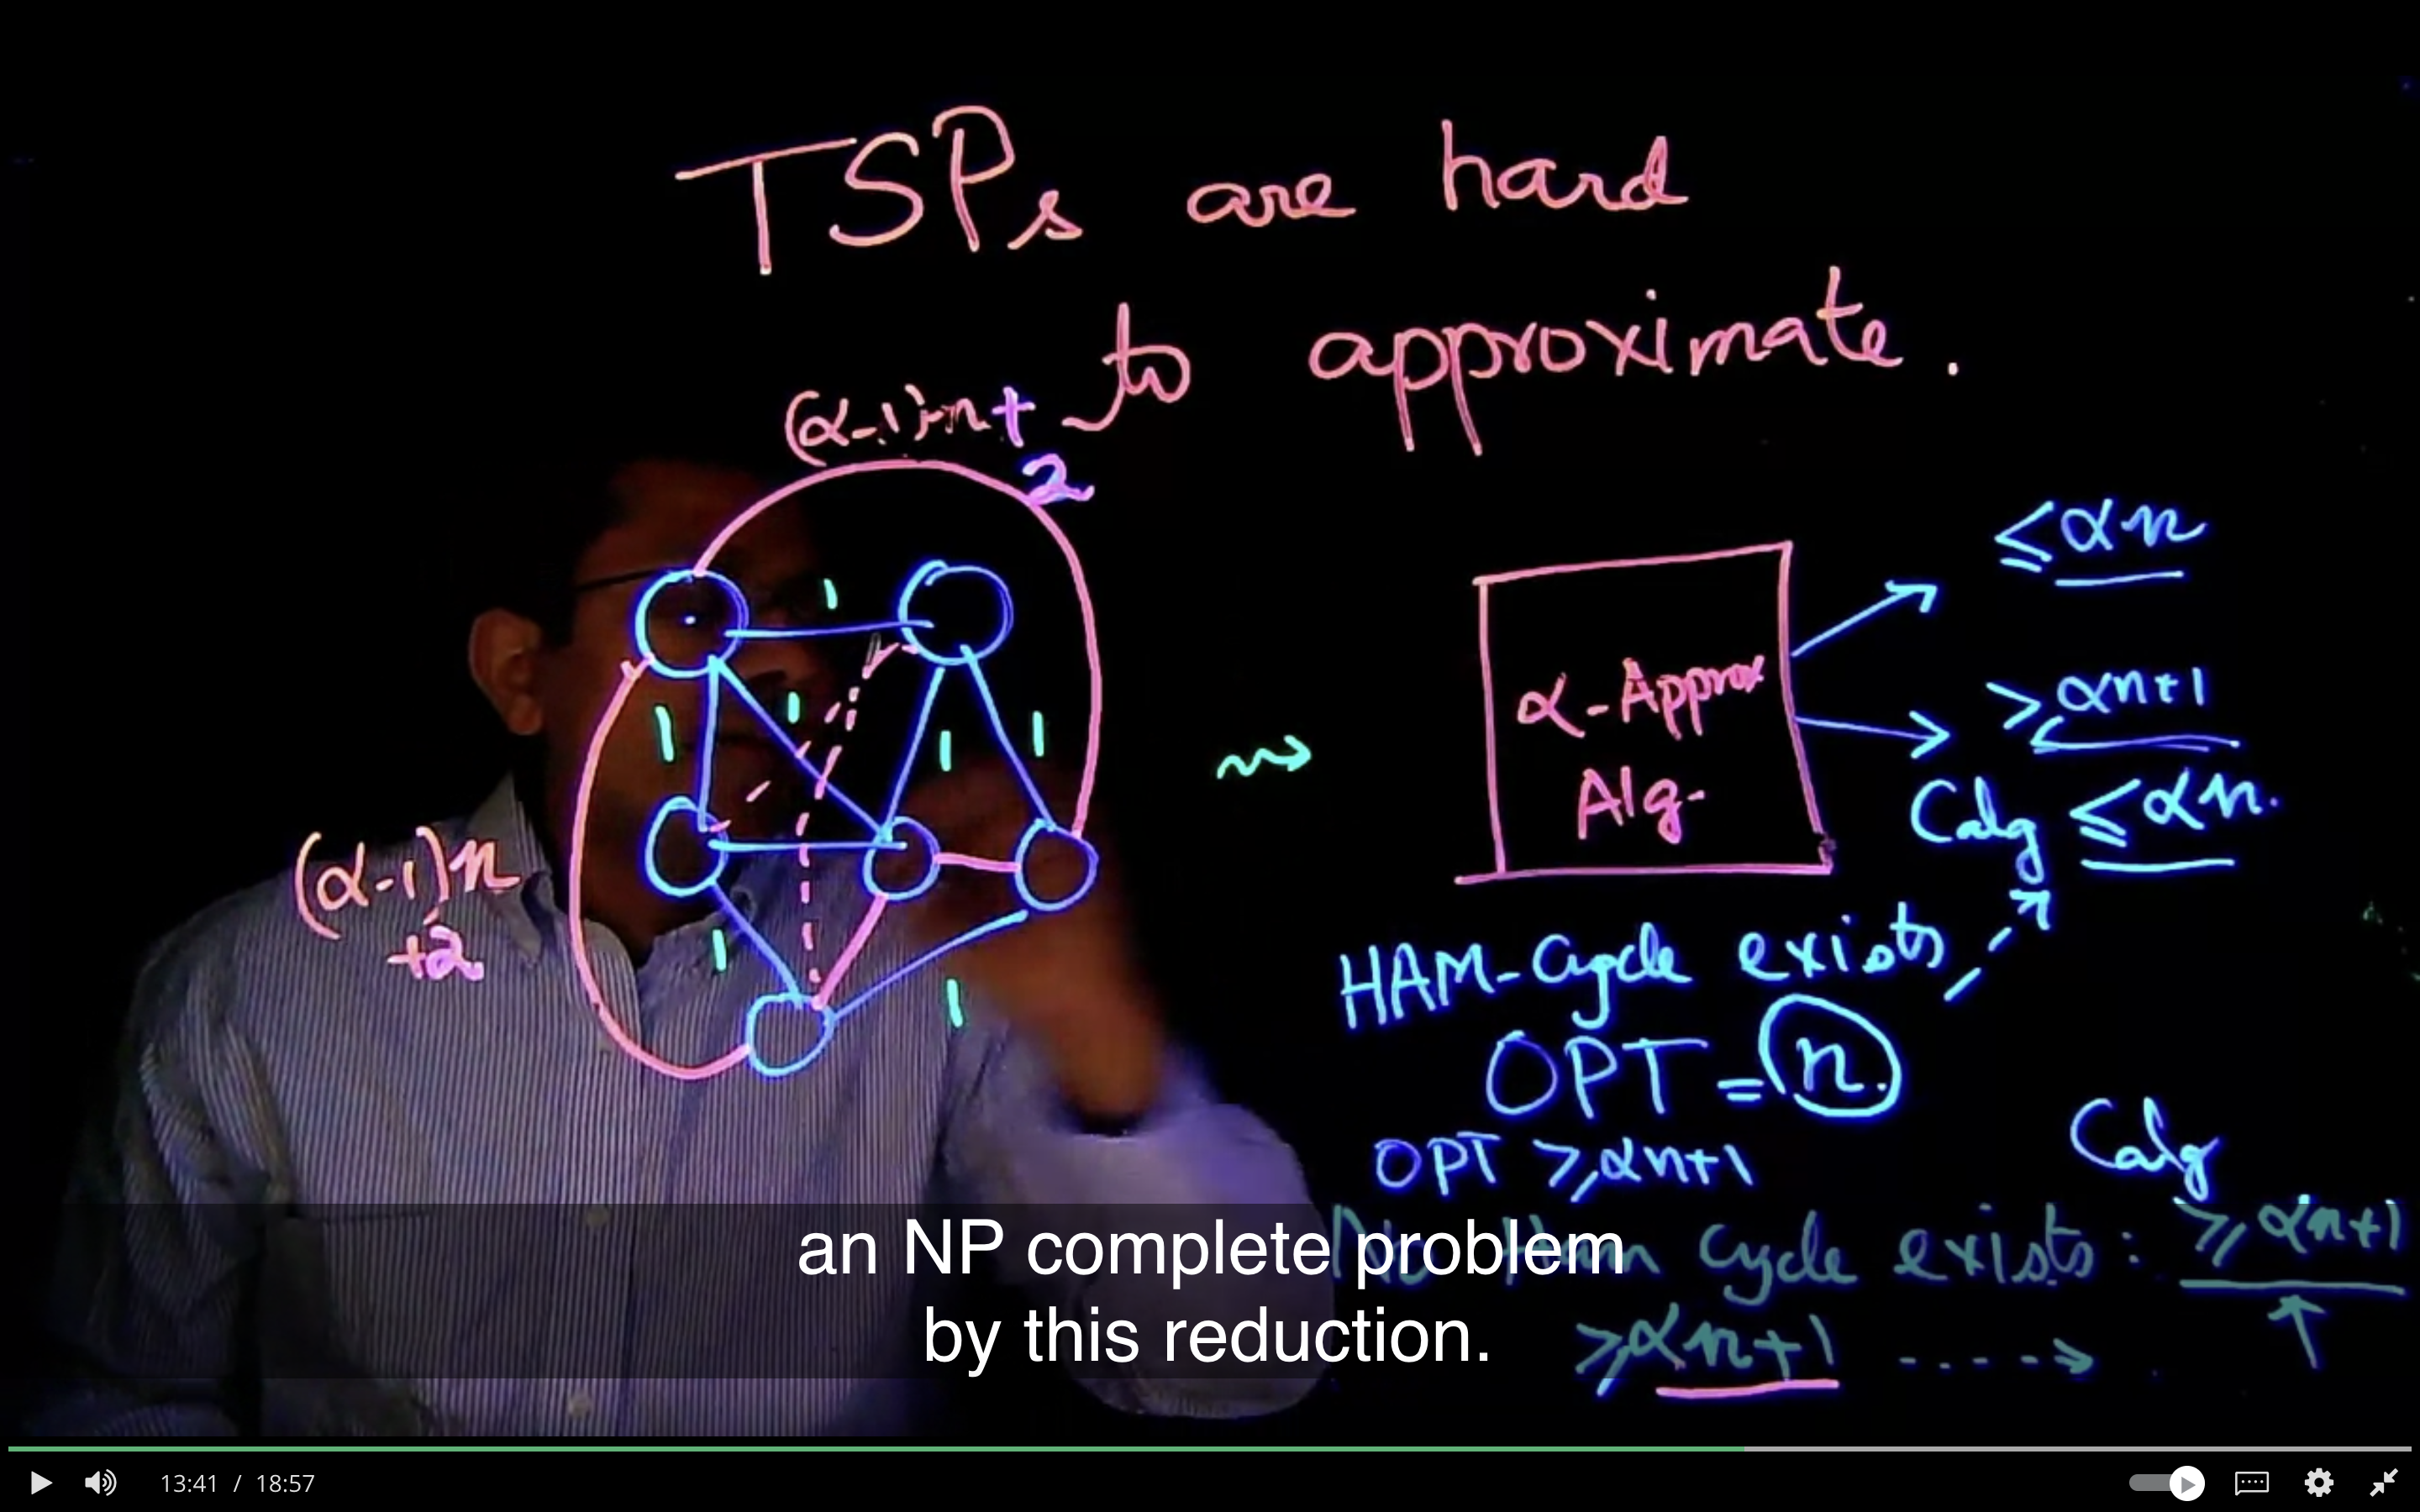 TSPs are hard
to approximate.
(α-1)·n+
2
1
1
1
1
1
1
1
(α-1)n
+2
α-Approx
Alg.
≤ αn
≥ αn+1
Calg ≤ αn.
HAM-Cycle exists
OPT = n.
OPT ≥ αn+1
Calg
No Ham Cycle exists: ≥ αn+1
≥ αn+1
an NP complete problem
by this reduction.
13:41 / 18:57